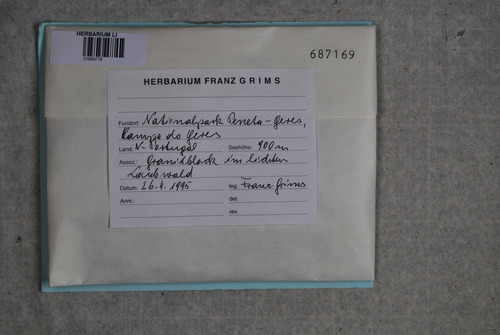 HERBARIUM LI
687169
HERBARIUM FRANZ GRIMS
Fundort: Nationalpark Peneta-Geres,
Campo do Geres
Land: N-Portugal Seehöhe: 900 m
Assoz.: Granitblock im lichten
Laubwald
Datum: 26.4.1995 leg. Franz Grims
Anm.: det.
rev.